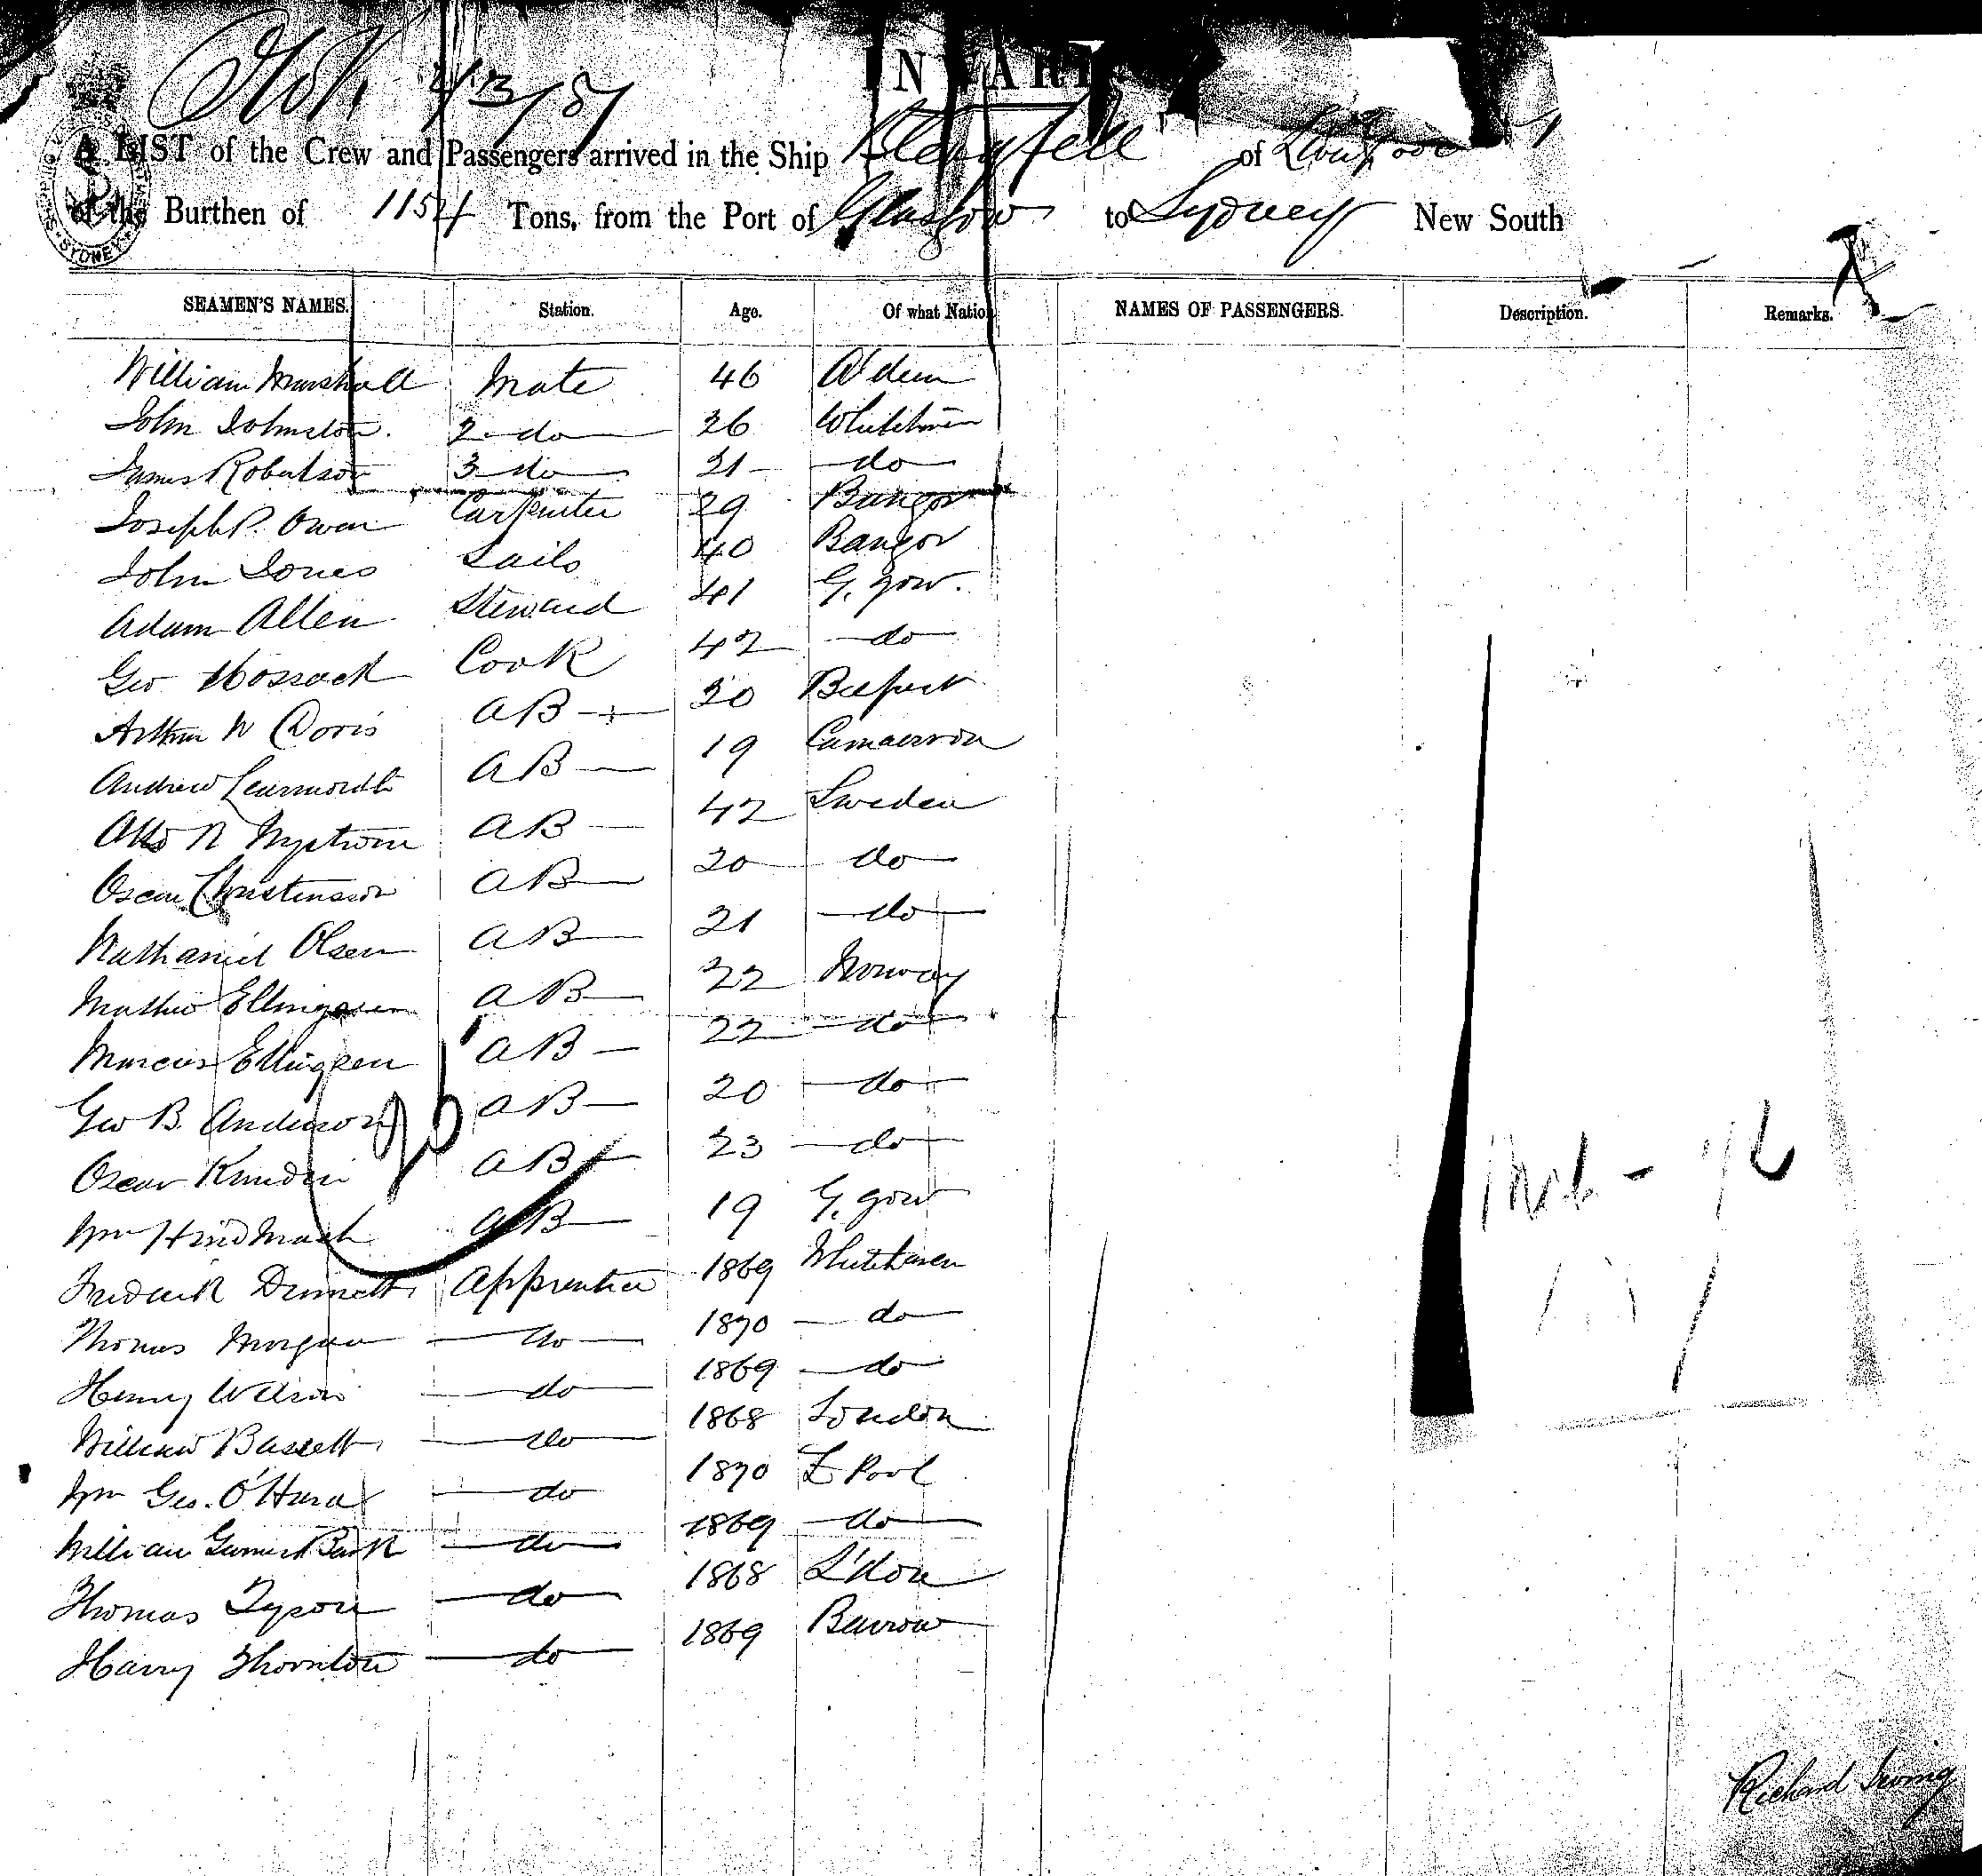 INWARD
A LIST of the Crew and Passengers arrived in the Ship of
of the Burthen of 1154 Tons, from the Port of Glasgow to Sydney New South
SEAMEN'S NAMES. Station. Age. Of what Nation NAMES OF PASSENGERS. Description. Remarks.
William Marshall Mate 46
John Johnston. 2 do 26
James Robertson 3 do 21 do
Joseph P. Owen Carpenter 29 Bangor
John Jones Sails 40 Bangor
Adam Allen Steward 41 G. gow.
Geo Hossack Cook 42 do
Arthur W AB 20 Belfast
Andrew Learmonth AB 19
Otto N Nystrom AB 42 Sweden
Oscar Christenson AB 20 do
Nathaniel Olsen AB 21 do
Mathw AB 22 Norway
Marcus Ellingsen AB 22 do
Geo B. Anderson AB 20 do
Oscar AB 23 do
Wm Hindmarsh AB 19 G. gow
Frederick Apprentice 1869 Whitehaven
Thomas Morgan do 1870 do
Henry Wilson do 1869 do
William Bassett do 1868 London
Wm Geo. O'Hara do 1870 L Pool
William do 1869 do
Thomas Tyson do 1868 L'don
Harry Thornton do 1869 Barrow
Richard Irving